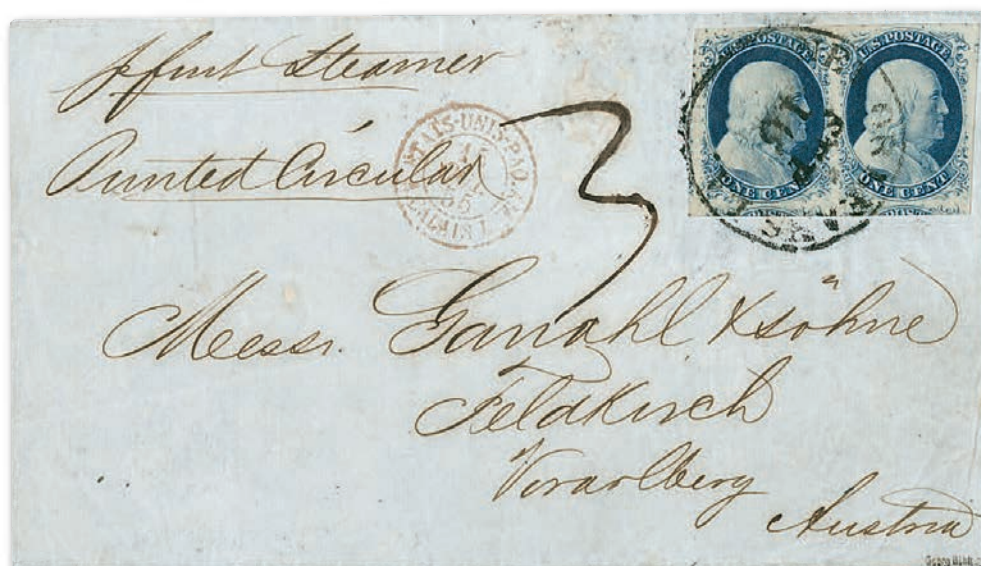 pr first Steamer
Printed Circular
ETATS-UNIS PAQ.
CALAIS
3
U.S. POSTAGE
ONE CENT
U.S. POSTAGE
ONE CENT
Messr. Ganahl & Söhne
Feldkirch
Vorarlberg
Austria